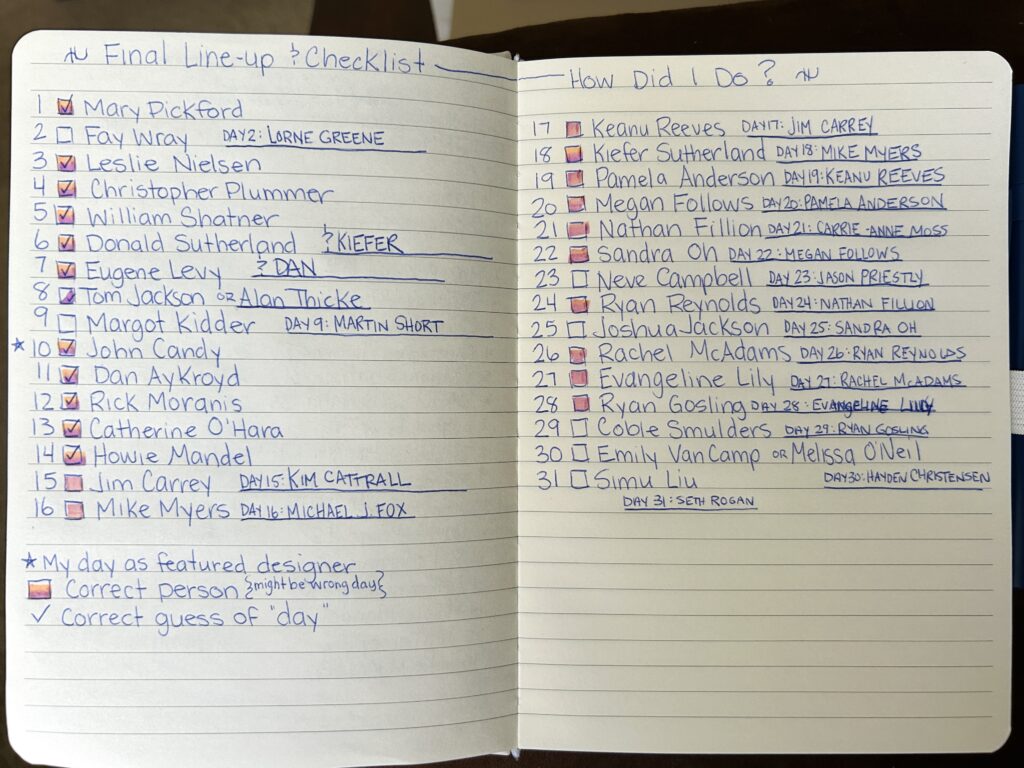 ~ Final Line-up & Checklist
1 ☑ Mary Pickford
2 ☐ Fay Wray DAY 2: LORNE GREENE
3 ☑ Leslie Nielsen
4 ☑ Christopher Plummer
5 ☑ William Shatner
6 ☑ Donald Sutherland & KIEFER
7 ☑ Eugene Levy & DAN
8 ☑ Tom Jackson OR Alan Thicke
9 ☐ Margot Kidder DAY 9: MARTIN SHORT
★ 10 ☑ John Candy
11 ☑ Dan Aykroyd
12 ☑ Rick Moranis
13 ☑ Catherine O'Hara
14 ☑ Howie Mandel
15 Jim Carrey DAY 15: KIM CATTRALL
16 Mike Myers DAY 16: MICHAEL J. FOX
★ My day as featured designer
Correct person {might be wrong day}
✓ Correct guess of "day"
How Did I Do? ~
17 Keanu Reeves DAY 17: JIM CARREY
18 Kiefer Sutherland DAY 18: MIKE MYERS
19 Pamela Anderson DAY 19: KEANU REEVES
20 Megan Follows DAY 20: PAMELA ANDERSON
21 Nathan Fillion DAY 21: CARRIE-ANNE MOSS
22 Sandra Oh DAY 22: MEGAN FOLLOWS
23 ☐ Neve Campbell DAY 23: JASON PRIESTLY
24 Ryan Reynolds DAY 24: NATHAN FILLION
25 ☐ Joshua Jackson DAY 25: SANDRA OH
26 Rachel McAdams DAY 26: RYAN REYNOLDS
27 Evangeline Lily DAY 27: RACHEL McADAMS
28 Ryan Gosling DAY 28: EVANGELINE LILLY
29 ☐ Cobie Smulders DAY 29: RYAN GOSLING
30 ☐ Emily VanCamp OR Melissa O'Neil
31 ☐ Simu Liu DAY 30: HAYDEN CHRISTENSEN
DAY 31: SETH ROGAN